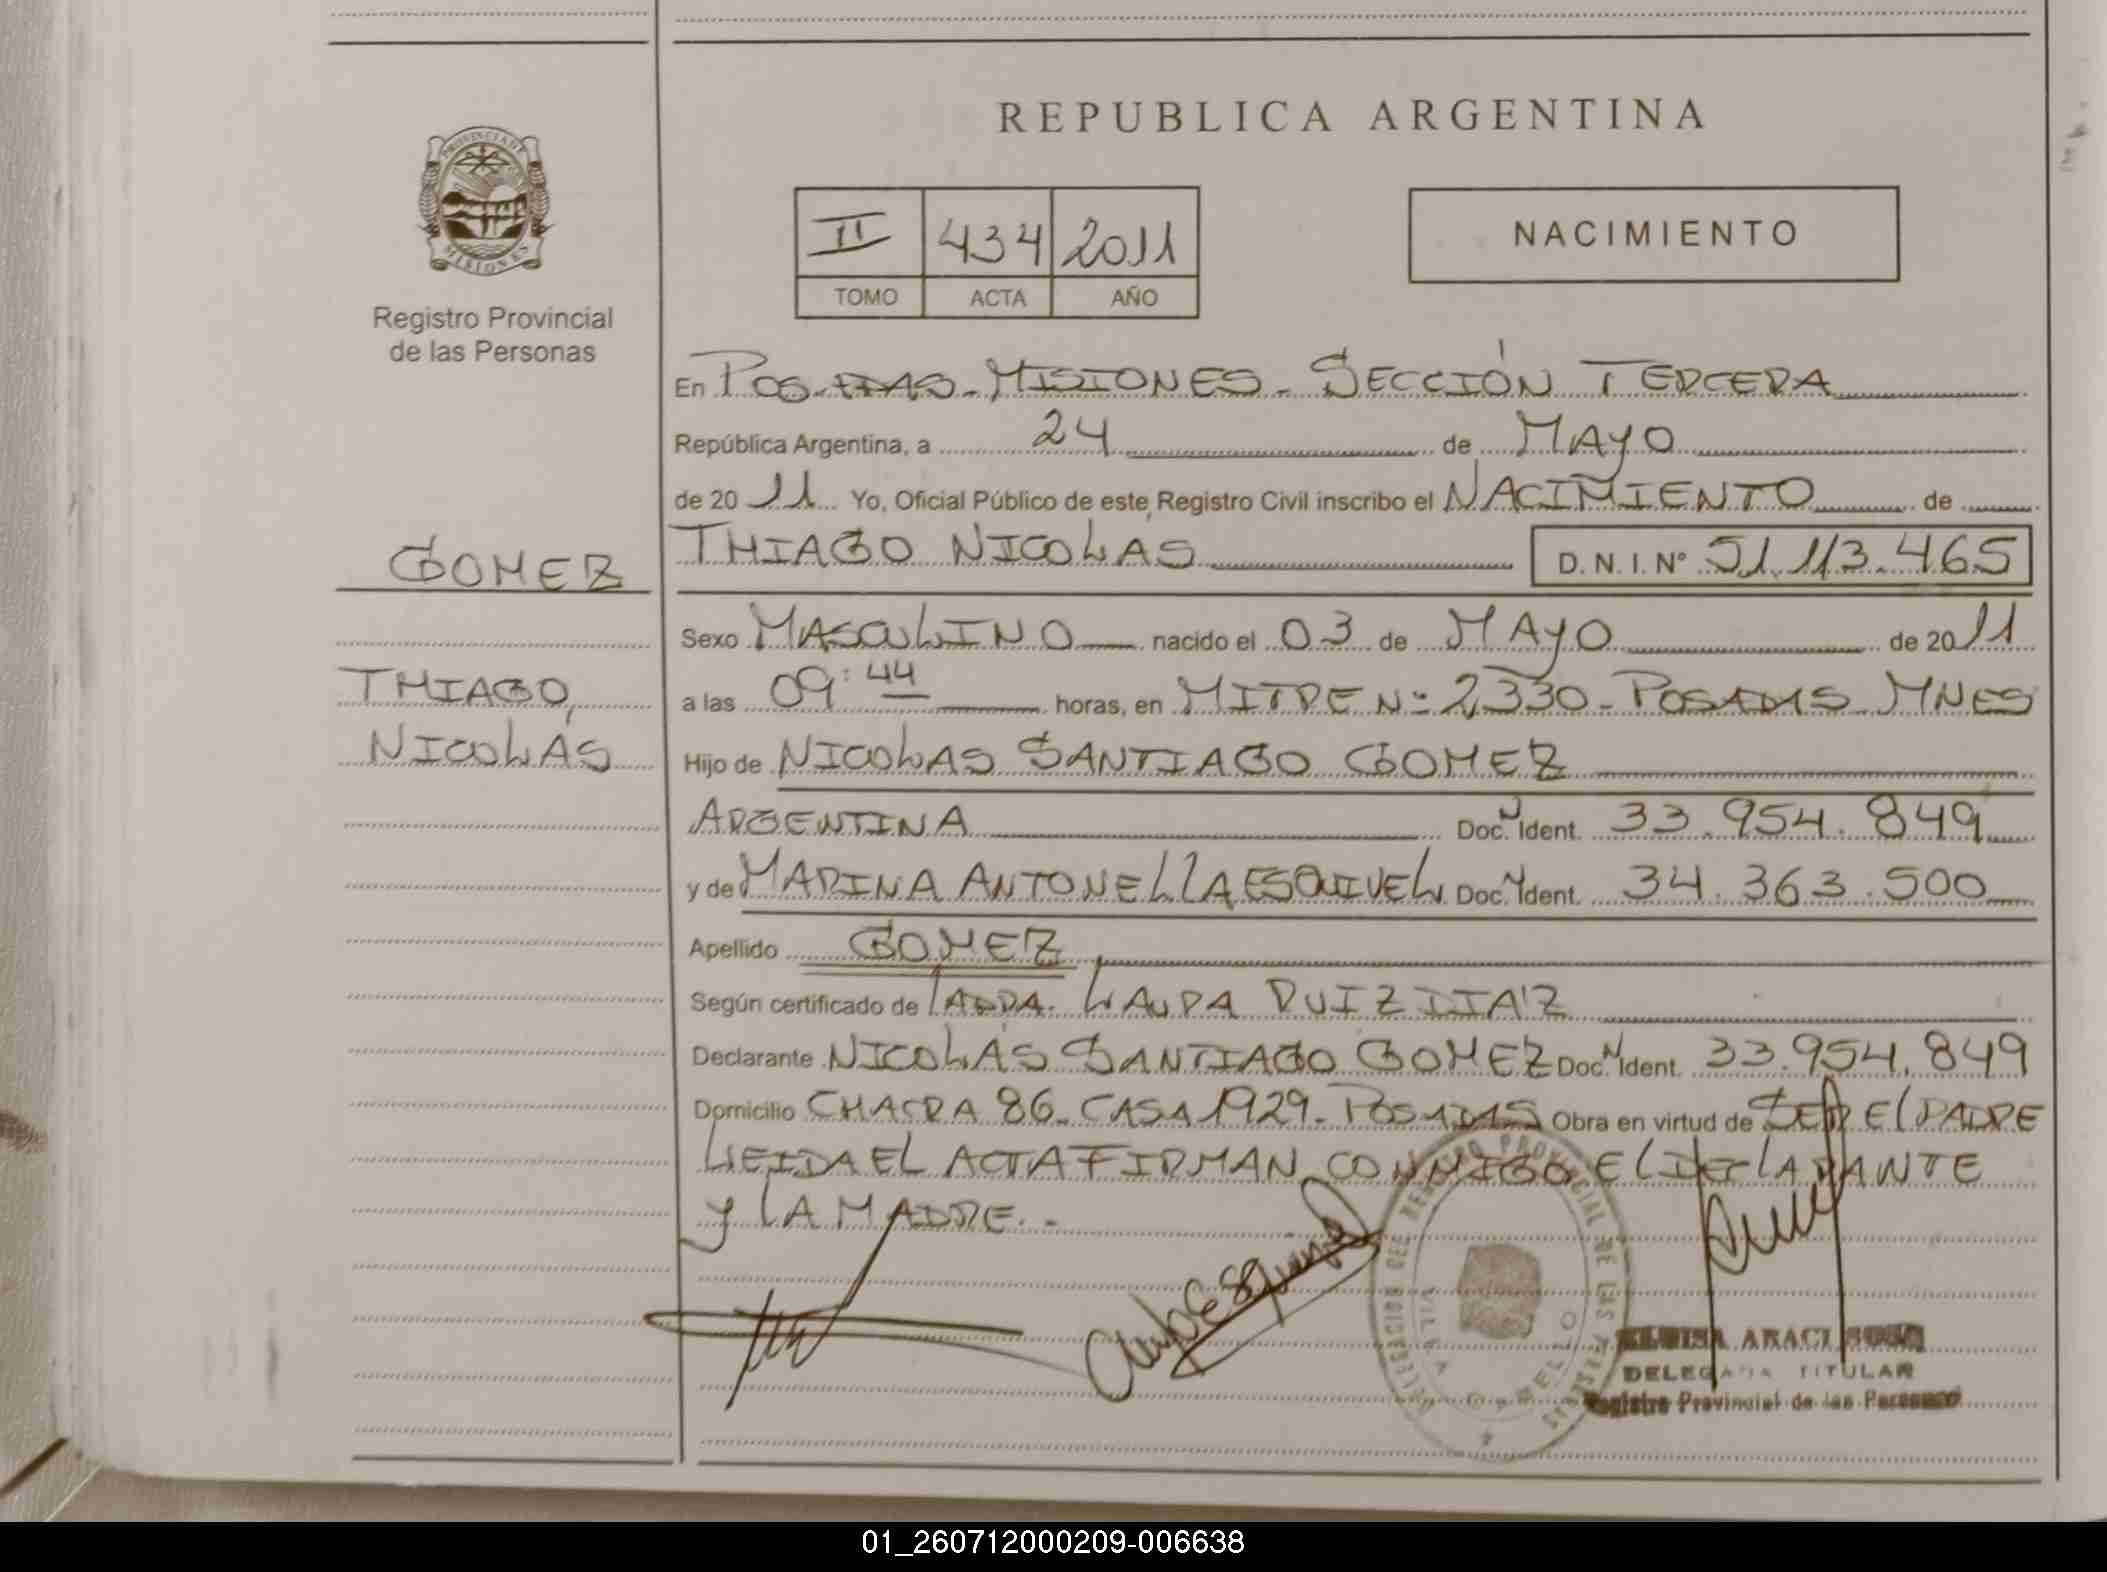 REPUBLICA ARGENTINA
PROVINCIA DE
MISIONES
Registro Provincial
de las Personas
II 434 2011
TOMO ACTA AÑO
NACIMIENTO
En POSADAS - MISIONES - SECCIÓN TERCERA
República Argentina, a 24 de MAYO
de 2011 Yo, Oficial Público de este Registro Civil inscribo el NACIMIENTO de
THIAGO NICOLAS D.N.I. Nº 51.113.465
GOMEZ
THIAGO,
NICOLAS
Sexo MASCULINO nacido el 03 de MAYO de 2011
a las 09:44 horas, en MITRE Nº 2330 - POSADAS - MNES
Hijo de NICOLAS SANTIAGO GOMEZ
ARGENTINA Doc. N Ident. 33.954.849
y de MARINA ANTONELLA ESQUIVEL Doc. N Ident. 34.363.500
Apellido GOMEZ
Según certificado de LAURA RUIZ DIAZ
Declarante NICOLÁS SANTIAGO GOMEZ Doc. N Ident. 33.954.849
Domicilio CHACRA 86 - CASA 1929 - POSADAS Obra en virtud de SER EL PADRE
LEIDA EL ACTA FIRMAN CONMIGO EL DECLARANTE
Y LA MADRE. -
REGISTRO PROVINCIAL DE LAS PERSONAS
VILLA CABELLO
DELEGADA TITULAR
Registro Provincial de las Personas
01_260712000209-006638